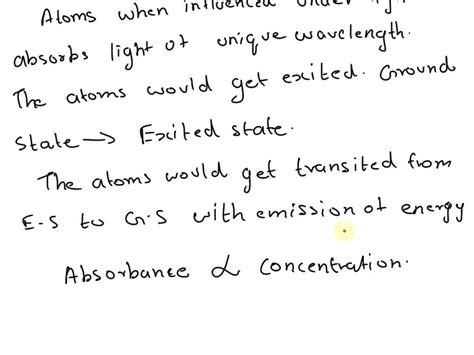 Atoms when influenced under
absorbs light of unique wavelength.
The atoms would get exited. Ground
state → Exited state.
The atoms would get transited from
E-S to G.S with emission of energy
Absorbance ∝ Concentration.